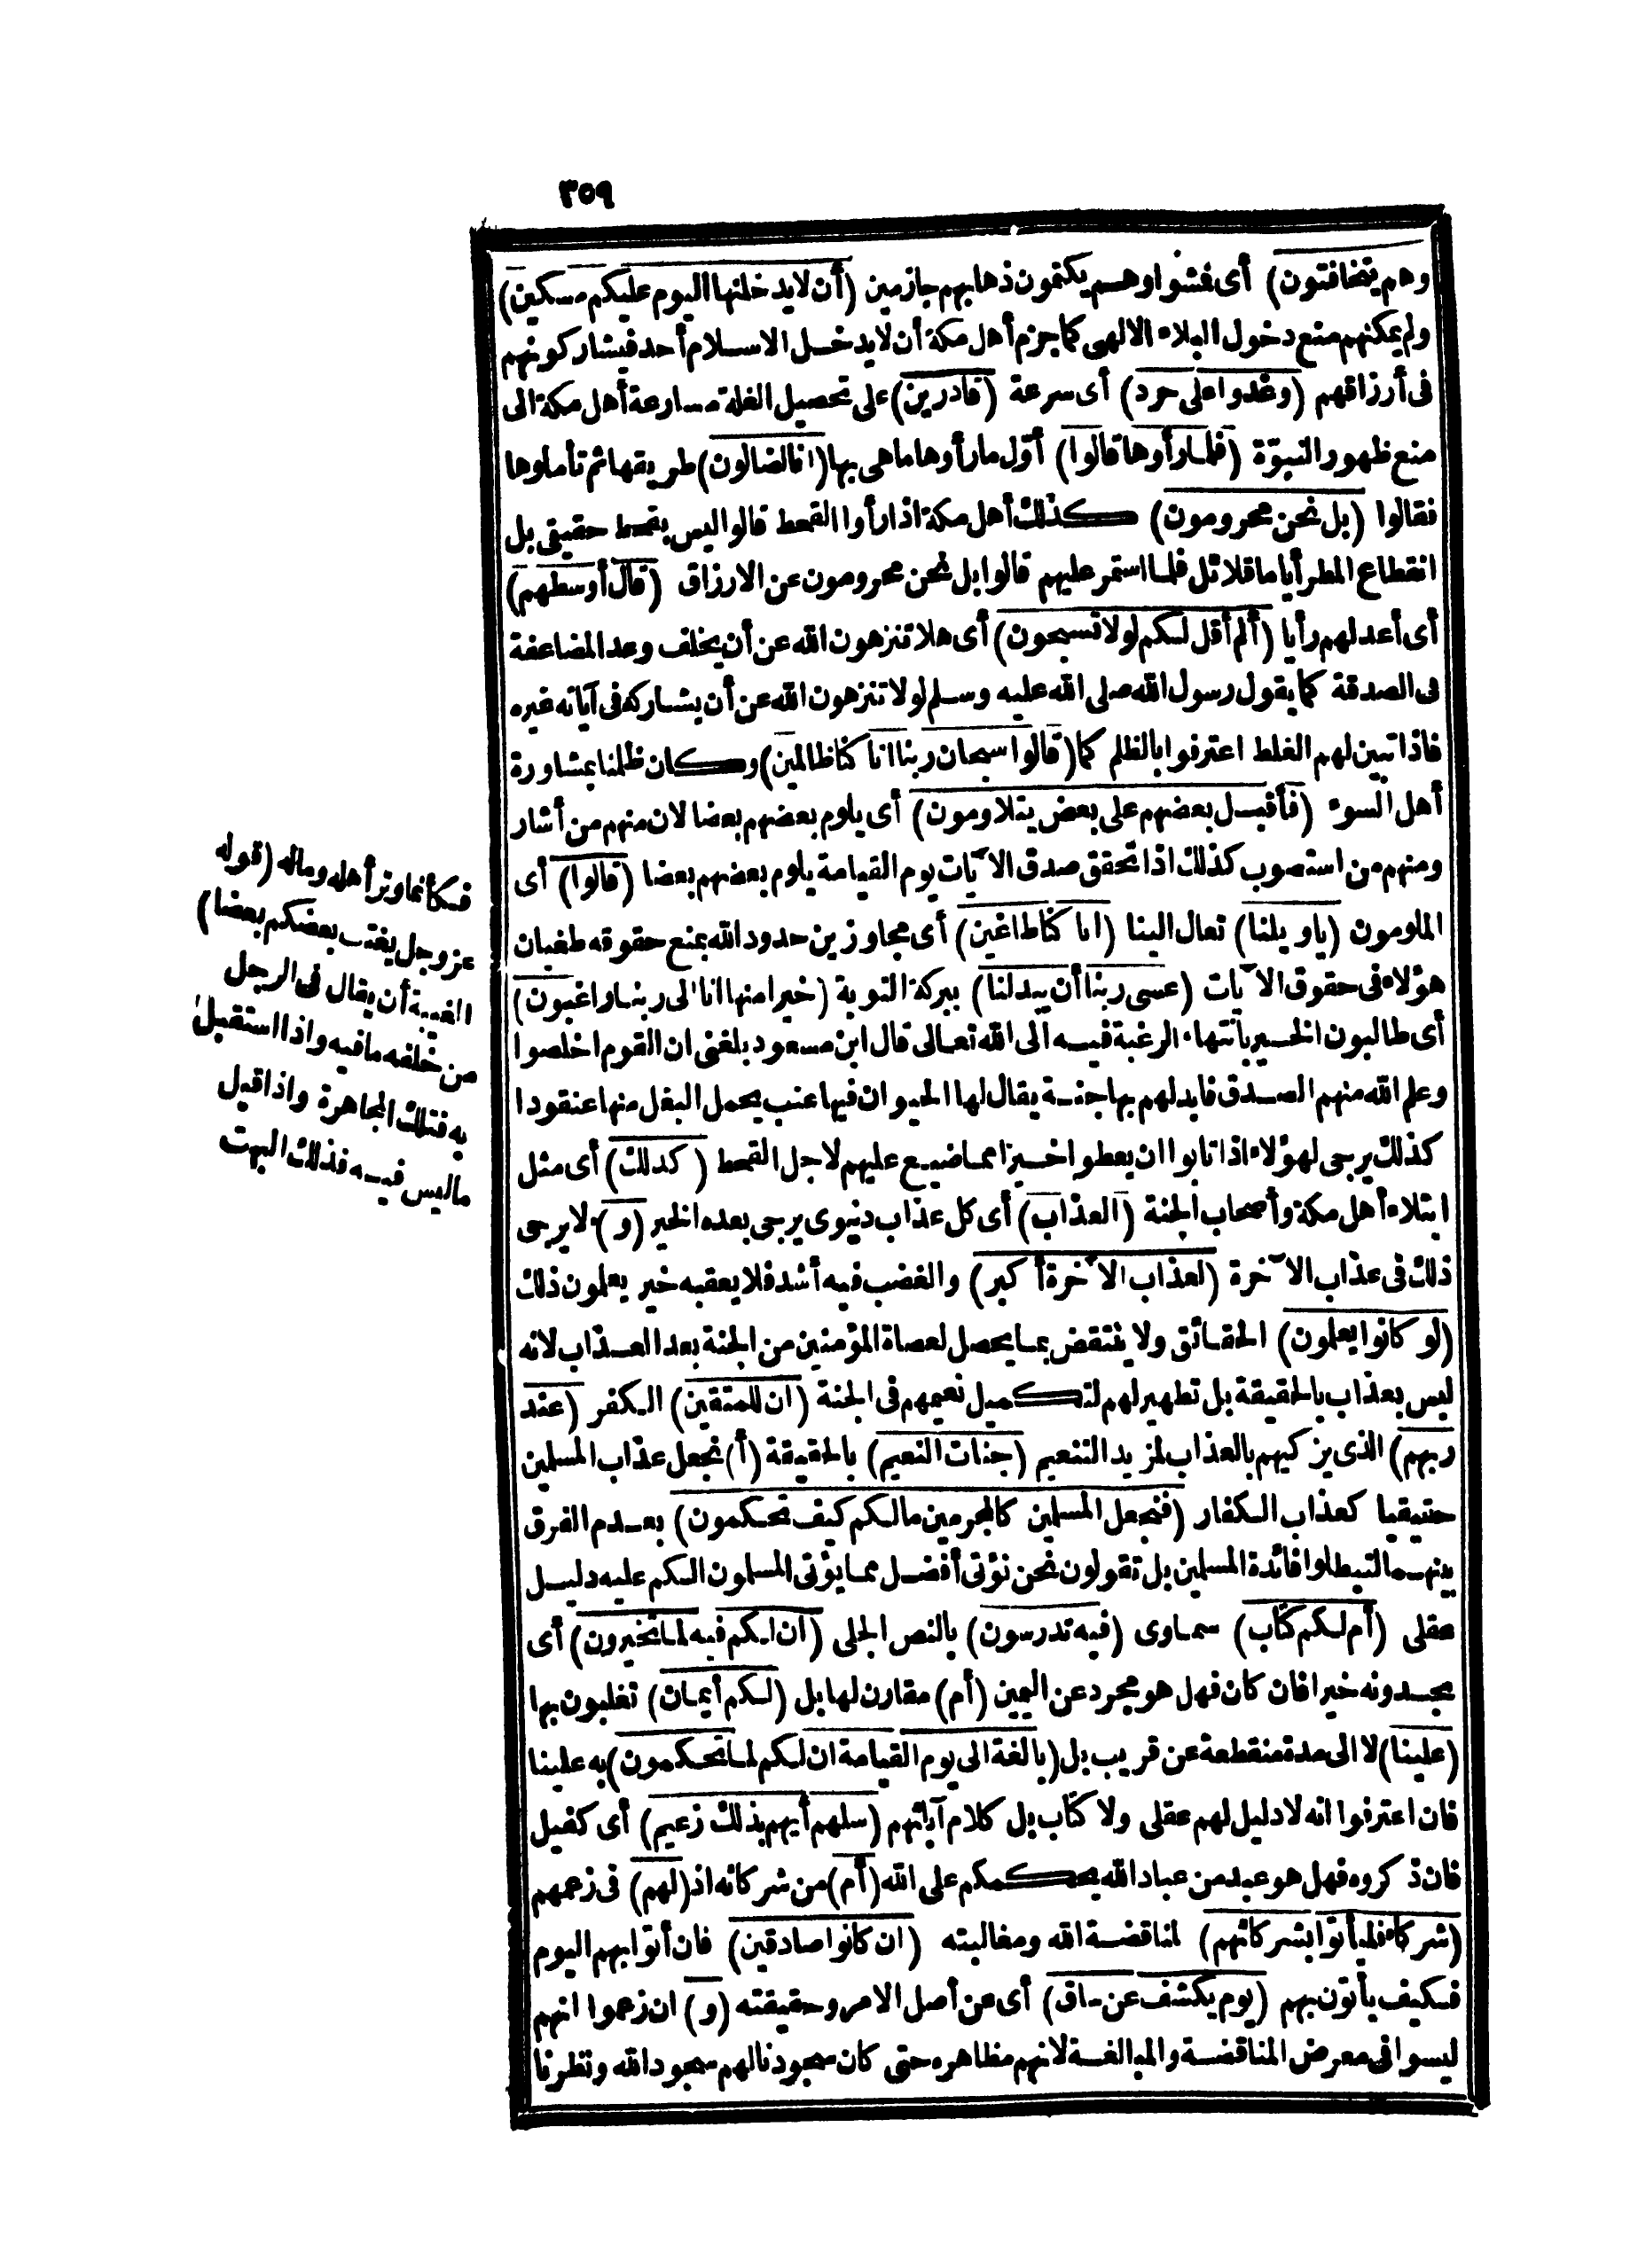 ٣٥٩
وهم يتخافتون) أى فشوا وهم يكتمون ذهابهم جازمين (أن لا يدخلنها اليوم عليكم مسكين)
ولم يمكنهم منع دخول البلاء الالهى كما جزم أهل مكة أن لا يدخل الاسلام أحد فيشاركونهم
فى أرزاقهم (وغدوا على حرد) أى سرعة (قادرين) على تحصيل الغلة مسارعة أهل مكة الى
منع ظهور النبوّة (فلما رأوها قالوا) أوّل ما رأوها ما هى بها (انا لضالون) طريقها ثم تأملوها
فقالوا (بل نحن محرومون) كذلك أهل مكة اذا رأوا القحط قالوا ليس بقحط حقيقى بل
انقطاع المطر أياما قلائل فلما استمر عليهم قالوا بل نحن محرومون عن الارزاق (قال أوسطهم)
أى أعدلهم رأيا (ألم أقل لكم لولا تسبحون) أى هلا تنزهون الله عن أن يخلف وعد المضاعفة
فى الصدقة كما يقول رسول الله صلى الله عليه وسلم لولا تنزهون الله عن أن يشاركه فى آياته غيره
فاذا تبين لهم الغلط اعترفوا بالظلم كما (قالوا سبحان ربنا انا كنا ظالمين) وكان ظلمنا بمشاورة
أهل السوء (فأقبل بعضهم على بعض يتلاومون) أى يلوم بعضهم بعضا لان منهم من أشار
ومنهم من استصوب كذلك اذا تحقق صدق الآيات يوم القيامة يلوم بعضهم بعضا (قالوا) أى
الملومون (ياويلنا) تعال الينا (انا كنا طاغين) أى مجاوزين حدود الله بمنع حقوقه طغيان
هؤلاء فى حقوق الآيات (عسى ربنا أن يبدلنا) ببركة التوبة (خيرا منها انا الى ربنا راغبون)
أى طالبون الخير بانتهاء الرغبة فيه الى الله تعالى قال ابن مسعود بلغنى ان القوم اخلصوا
وعلم الله منهم الصدق فابدلهم بها جنة يقال لها الحيوان فيها عنب يحمل البغل منها عنقودا
كذلك يرجى لهؤلاء اذا تابوا ان يعطوا خيرا مما ضيع عليهم لاجل القحط (كذلك) أى مثل
ابتلاء أهل مكة وأصحاب الجنة (العذاب) أى كل عذاب دنيوى يرجى بعده الخير (و) لا يرجى
ذلك فى عذاب الآخرة (لعذاب الآخرة أكبر) والغضب فيه أشد فلا يعقبه خير يعلمون ذلك
(لو كانوا يعلمون) الحقائق ولا ينتقض بما يحصل لعصاة المؤمنين من الجنة بعد العذاب لانه
ليس بعذاب بالحقيقة بل تطهير لهم لتكميل نعيمهم فى الجنة (ان للمتقين) الكفر (عند
ربهم) الذى يزكيهم بالعذاب لمزيد التنعيم (جنات النعيم) بالحقيقة (أ) نجعل عذاب المسلمين
حقيقيا كعذاب الكفار (فنجعل المسلمين كالمجرمين مالكم كيف تحكمون) بعدم الفرق
بينهما لتبطلوا فائدة المسلمين بل تقولون نحن نؤتى أفضل مما يؤتى المسلمون الكم عليه دليل
عقلى (أم لكم كتاب) سماوى (فيه تدرسون) بالنص الجلى (ان لكم فيه لما تخيرون) أى
تجدونه خيرا فان كان فهل هو مجرد عن اليمين (أم) مقارن لها بل (لكم أيمان) تغلبون بها
(علينا) لا الى مدة منقطعة عن قريب بل (بالغة الى يوم القيامة ان لكم لما تحكمون) به علينا
فان اعترفوا انه لا دليل لهم عقلى ولا كتاب بل كلام آبائهم (سلهم أيهم بذلك زعيم) أى كفيل
فان ذكروه فهل هو عبد من عباد الله يحكمكم على الله (أم) من شركائه اذ (لهم) فى زعمهم
(شركاء فليأتوا بشركائهم) لمناقضة الله ومغالبته (ان كانوا صادقين) فان أتوا بهم اليوم
فكيف يأتون بهم (يوم يكشف عن ساق) أى عن أصل الامر وحقيقته (و) ان زعموا انهم
ليسوا فى معرض المناقضة والمبالغة لانهم مظاهره حتى كان سجودنا لهم سجود الله ونظرنا
فكأنما وتر أهله وماله (قوله
عز وجل يغتب بعضكم بعضا)
الغيبة أن يقال فى الرجل
من خلفه ما فيه واذا استقبل
به فتلك المجاهرة واذا قيل
ما ليس فيه فذلك البهت